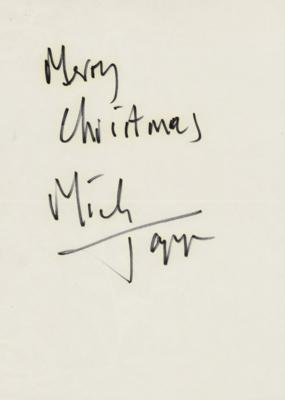 Merry
Christmas
Mick
Jagger